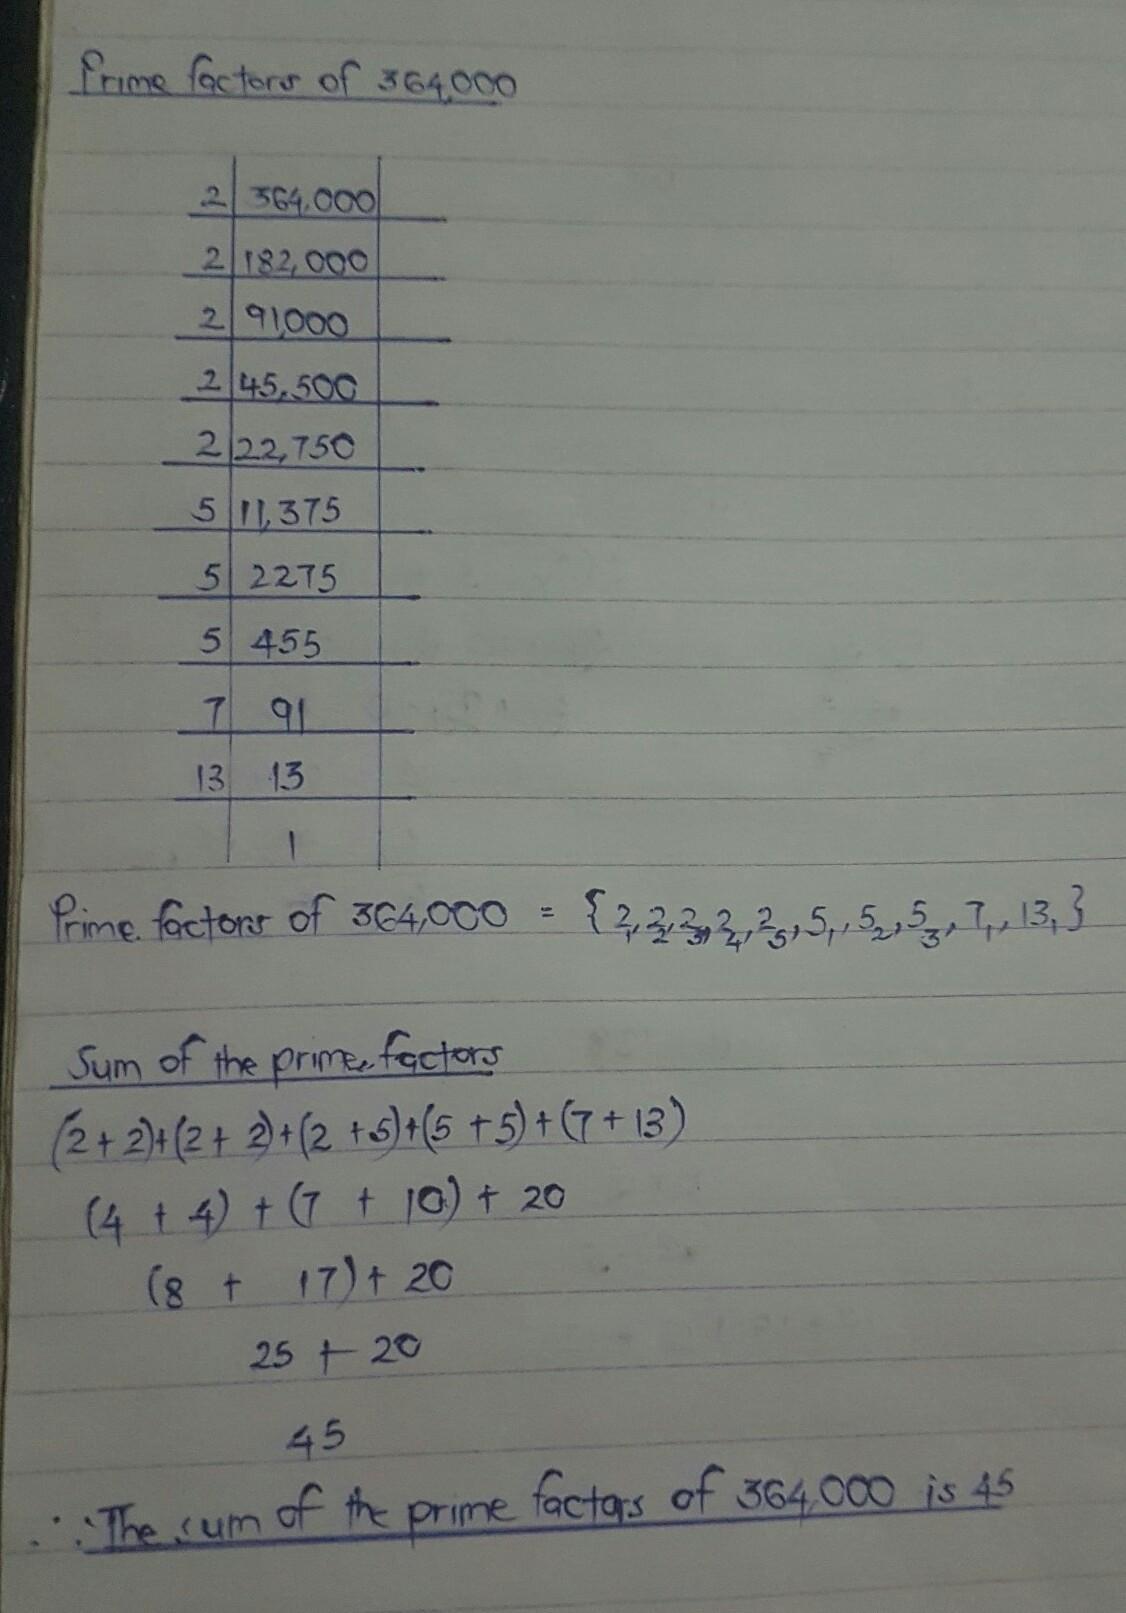 Prime factors of 364,000
2 364,000
2 182,000
2 91,000
2 45,500
2 22,750
5 11,375
5 2275
5 455
7 91
13 13
1
Prime factors of 364,000 = {2₁,2₂,2₃,2₄,2₅,5₁,5₂,5₃,7₁,13₁}
Sum of the prime factors
(2+2)+(2+2)+(2+5)+(5+5)+(7+13)
(4+4)+(7+10)+20
(8+17)+20
25+20
45
∴ The sum of the prime factors of 364,000 is 45